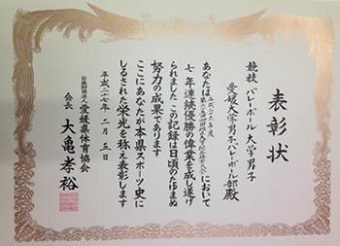 表彰状
競技 バレーボール 大学男子
愛媛大学男子バレーボール部殿
あなたは において
七年連続優勝の偉業を成し遂げ
られました この記録は日頃のたゆまぬ
努力の成果であります
ここにあなたが本県スポーツ史に
しるされた栄光を称え表彰します
平成二十七年二月五日
公益財団法人 愛媛県体育協会
会長 大亀孝裕